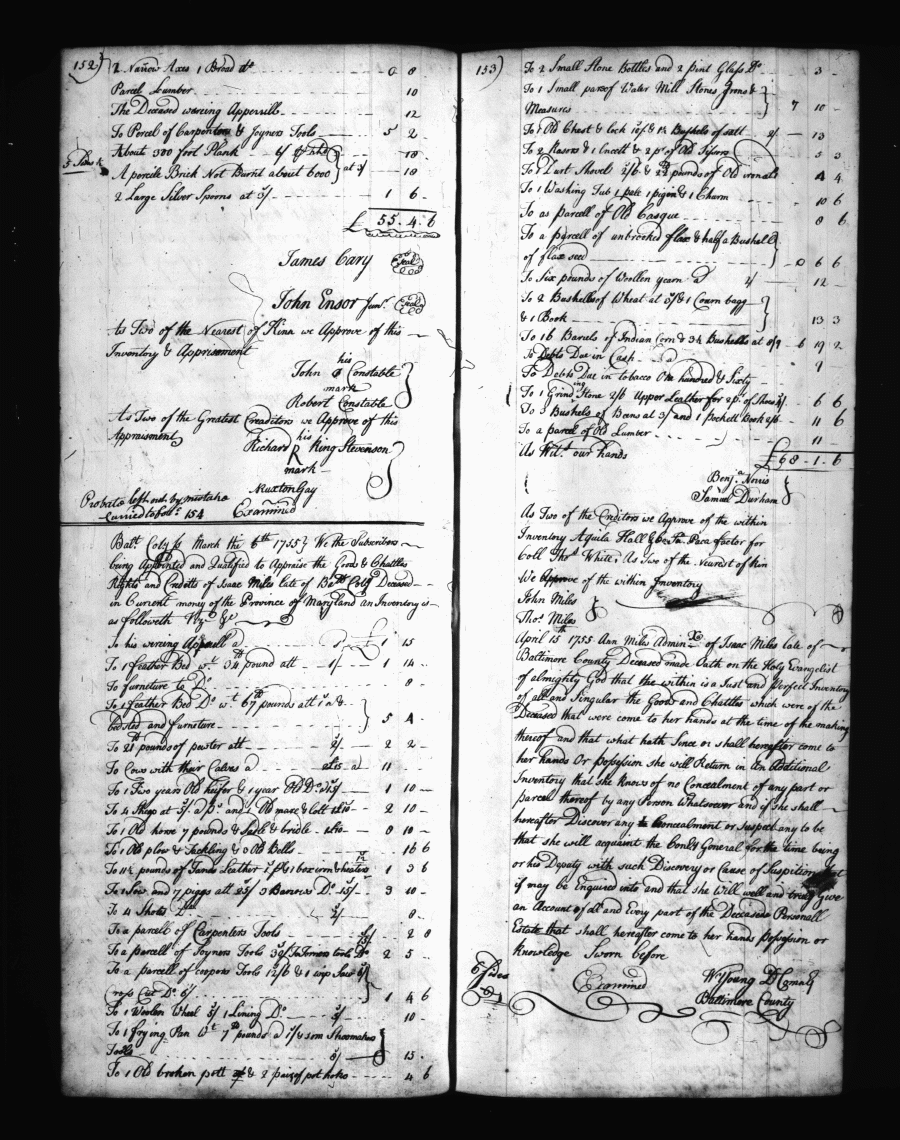 152)
2 Narrow Axes 1 Broad Do 0 8
Parcel Lumber 10
The Deceased wareing Apperrill 12
To Percel of Carpenters & Joyners Tools 5 2
About 300 foot Plank 18
A percile Brick Not Burnt about 6000 } at 3/ 18
5 Sides
2 Large Silver Spoons at 3/ 1 6
£ 55 . 4 . 6
James Cary Seal
John Ensor Junr. Seal
As Two of the Nearest of Kinn we Approve of this
Inventory & Apprisement
his
John Constable
mark
Robert Constable
As Two of the Greatest Creaditors we Approve of this
Appraisment
his
Richard R King Stevenson
mark
Nuxton Gay
Probate left out by mistake
carried to folo. 154 Examined
Balt. Coty ss March the 6th 1755 } We the Subscribers
being Appointed and Qualified to Appraise the Goods & Chattles
Rights and Credits of Isaac Miles late of Balt Coty Deceased
in Current money of the Province of Maryland an Inventory is
as followeth Viz &c
To his wereing Apparell a £ 1 15
To 1 feather Bed wt. 34 pound att 1/ 1 14
To furniture to Do 8
To 1 feather Bed Do wt 67 pounds att &
bedsted and furneture 5 4
To 21 pounds of pewter att 2/ 2 2
To Cows with their Calves a 11
To 1 Two years Old heifer & 1 year Old Do 1 10
To 4 Sheep at 5/ a ps and 1 Old mare & Colt 2 10
To 1 Old horse 7 pounds & Sadle & bridle 8 10
To 1 Old plow & Tackling & 3 Old Bells 16 6
To 11½ pounds of Tand Leather 1 box iorn & heaters 1 3 6
To 1 Sow and 7 piggs att 25/ 3 Barrows Do 15/ 3 10
To 4 Shots Do 2/ 8
To a parcell of Carpenters Tools 2 8
To a parcell of Joyners Tools 30/ Turners tools Do 15/ 2 5
To a parcell of coopers Tools 12/6 & 1 wip Saw
cross Cut Do. 6/ 1 4 6
To 1 Woolen Wheel 5/ 1 Lining Do 5/ 10
To 1 frying Pan wt 7 pounds a 1/ & som Shoemakers
Tools 8/ 15
To 1 Old broken pott & 2 paiz of pot hoks 4 6
153)
To 2 Small Stone Bottles and 2 pint Glass Do 3
To 1 Small parcel of Water Mill Stones Irons &
Measures 7 10
To 1 Old Chest & lock 10/ & 1½ Bushels of salt 2/ 13
To 2 Rasors & 1 Lncett & 2 pr of Old Sisors 5 3
To 1 Dust Shovel 2/6 & pounds of Old iron at 4 4
To 1 Washing Tub 1 pale 1 pigin & 1 Charm 10 6
To as parcell of Old Casque 8 6
To a parcell of unbrooked flax & half a Bushell
of flax seed 0 6 6
To Six pounds of Woollen yearn a 2/ 12
To 2 Bushells of Wheat at 3/ & 1 Courn bagg
& 1 Book 13 3
To 16 Barels of Indian Corn & 34 Bushells at 8/9 6 19 2
To Debts Due in Cash a 9
To Debts Due in tobacco One hundred & Sixty
To 1 Grinding Stone 2/6 Upper Leather for 2 pr. of Shoes 4/ 6 6
To 3 Bushels of Beens at 3/ and 1 Pockett Book 2/6 11 6
To a parcel of Old Lumber 11
As Wit. our hands £ 68 . 1 . 6
Benja. Norris
Samuel Durham
As Two of the Creditors we Approve of the within
Inventory Aquila Hall & Paca factor for
Coll Thos. White. As Two of the Nearest of Kin
We Approve of the within Inventory
John Miles
Thos. Miles
April 15th 1755 Ann Miles Admin Xo of Isaac Miles late of
Baltimore County Deceased made Oath on the Holy Evangelist
of almighty God that the within is a Just and Perfect Inventory
of all and Singular the Goods and Chattles which were of the
Deceased that were come to her hands at the time of the making
thereof and that what hath Since or shall hereafter come to
her hands Or possesion she will Return in An Additional
Inventory that she knows of no Concealment of any part or
parcel thereof by any Person Whatsoever and if she shall
hereafter Discover any Concealment or suspect any to be
that she will acquaint the Com'y General for the time being
or his Deputy with such Discovery or Cause of Suspition that
it may be Enquired into and that she Will well and truly Give
an Account of all and Every part of the Deceaseds Personall
Estate that shall hereafter come to her hands possession or
Knowledge Sworn before
6 Sides
Examined Wm Young D Comry
Baltimore County